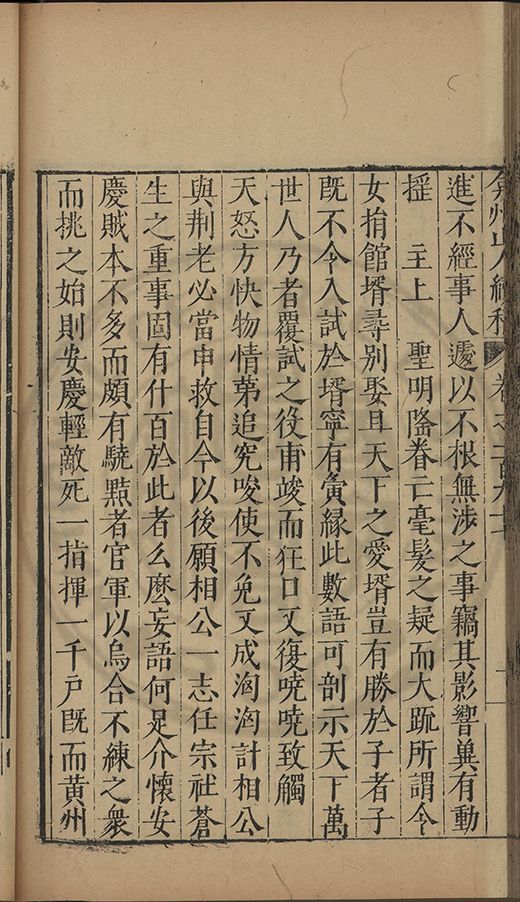 弇州山人續稿 卷之一百九十
進不經事人遽以不根無涉之事竊其影響兾有動
搖　主上　聖明隆眷亡毫髮之疑而大䟽所謂令
女捐館壻尋別娶且天下之愛壻豈有勝於子者子
旣不令入試於壻寧有夤緣此數語可剖示天下萬
世人乃者覆試之役甫竣而狂口又復嘵嘵致觸
天怒方快物情第追究唆使不免又成洶洶計相公
與荆老必當申救自今以後願相公一志任宗社蒼
生之重事固有什百於此者么麽妄語何足介懷安
慶賊本不多而頗有驍黠者官軍以烏合不練之衆
而挑之始則安慶輕敵死一指揮一千戶旣而黃州